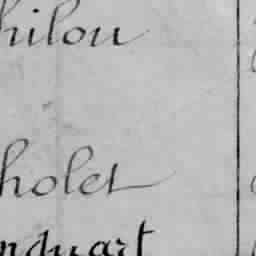 hilou
holet
nquart